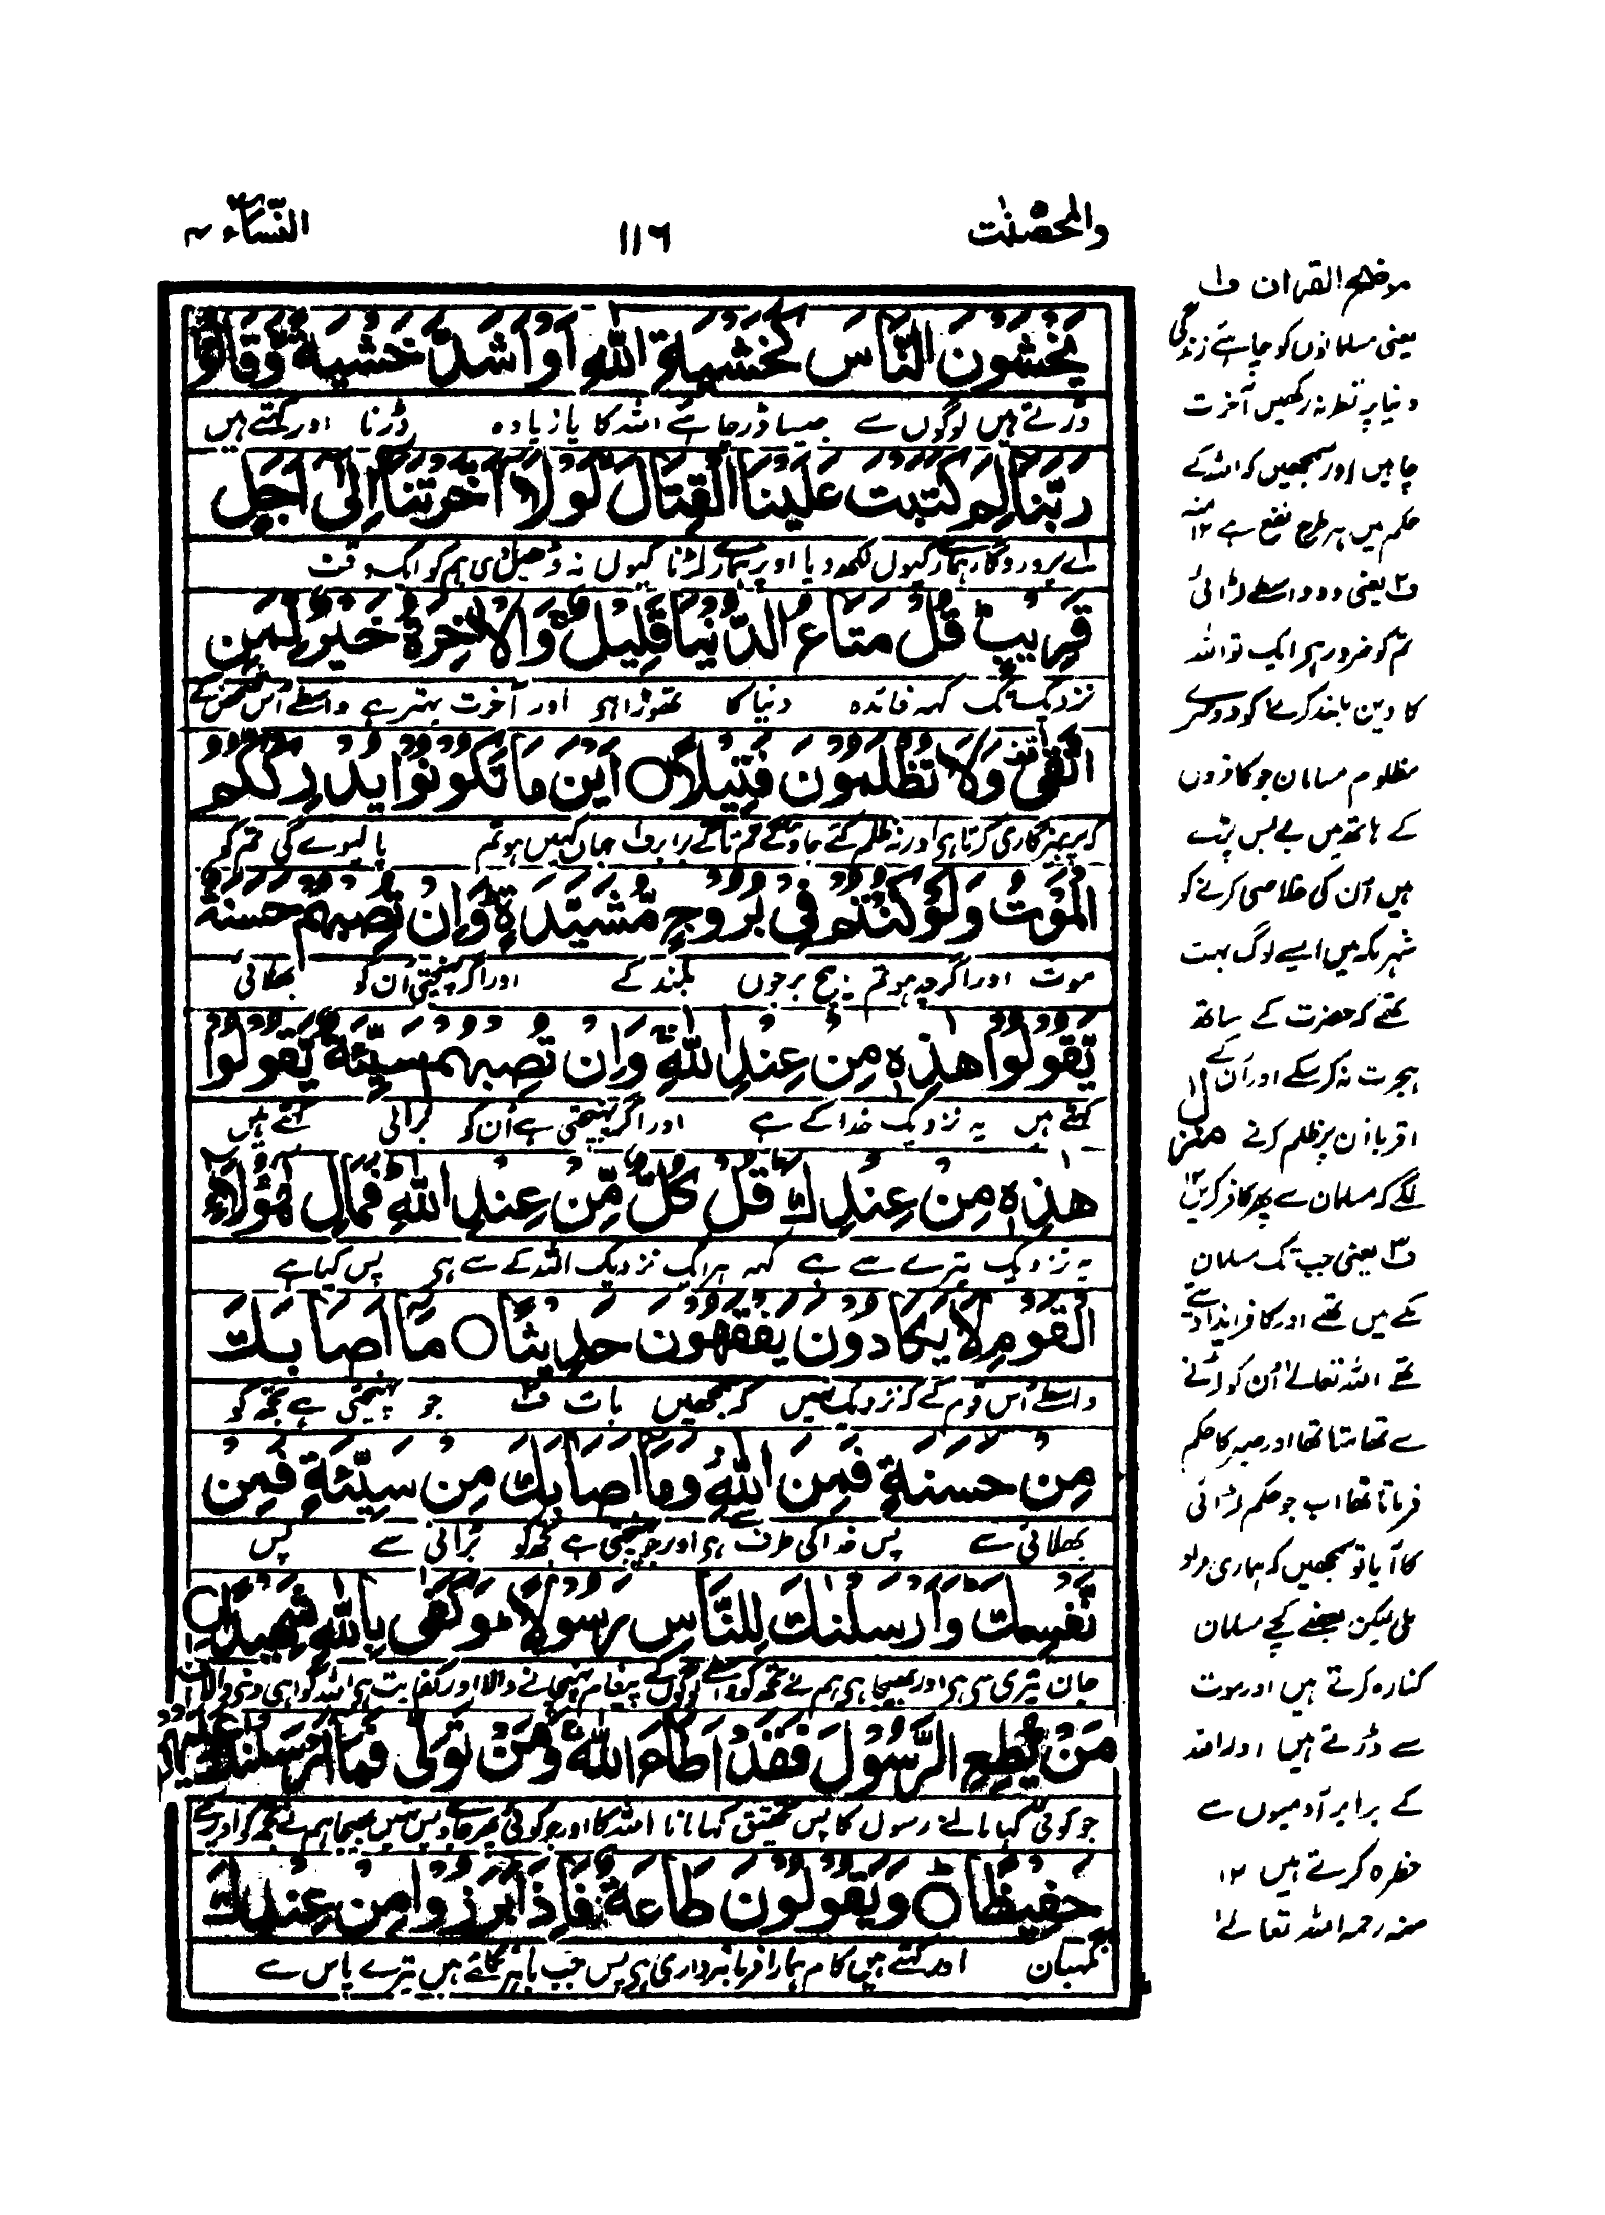 والمحصنت
١١٦
النساء ٤
يَخْشَوْنَ النَّاسَ كَخَشْيَةِ اللّٰهِ اَوْ اَشَدَّ خَشْيَةً ۚ وَقَالُوْا
ڈرتے ہیں لوگوں سے جیسا ڈر چاہئے اللہ کا یا زیادہ ڈرنا اور کہتے ہیں
رَبَّنَا لِمَ كَتَبْتَ عَلَيْنَا الْقِتَالَ لَوْلَآ اَخَّرْتَنَآ اِلٰٓى اَجَلٍ
اے پروردگار ہمارے کیوں لکھ دیا اوپر ہمارے لڑنا کیوں نہ ڈھیل دی ہم کو ایک وقت
قَرِيْبٍ ؕ قُلْ مَتَاعُ الدُّنْيَا قَلِيْلٌ ۚ وَالْاٰخِرَةُ خَيْرٌ لِّمَنِ
نزدیک تک کہہ فائدہ دنیا کا تھوڑا ہی اور آخرت بہتر ہے واسطے اس شخص کے
اتَّقٰى ۫ وَلَا تُظْلَمُوْنَ فَتِيْلًا ○ اَيْنَ مَا تَكُوْنُوْا يُدْرِكْكُّمُ
کہ پرہیزگاری کرتا ہی اور نہ ظلم کئے جاؤ گے تم تاگے برابر ف۱ جہاں کہیں ہو تم پا لیوے گی تم کو
الْمَوْتُ وَلَوْ كُنْتُمْ فِيْ بُرُوْجٍ مُّشَيَّدَةٍ ؕ وَاِنْ تُصِبْهُمْ حَسَنَةٌ
موت اور اگرچہ ہو تم بیچ برجوں بلند کے اور اگر پہنچتی ان کو بھلائی
يَّقُوْلُوْا هٰذِهٖ مِنْ عِنْدِ اللّٰهِ ۚ وَاِنْ تُصِبْهُمْ سَيِّئَةٌ يَّقُوْلُوْا
کہتے ہیں یہ نزدیک خدا کے ہے اور اگر پہنچتی ہے ان کو برائی کہتے ہیں
هٰذِهٖ مِنْ عِنْدِكَ ؕ قُلْ كُلٌّ مِّنْ عِنْدِ اللّٰهِ ؕ فَمَالِ هٰٓؤُلَآءِ
یہ نزدیک تیرے سے ہے کہہ ہر ایک نزدیک اللہ کے سے ہی پس کیا ہے
الْقَوْمِ لَا يَكَادُوْنَ يَفْقَهُوْنَ حَدِيْثًا ○ مَآ اَصَابَكَ
واسطے اس قوم کے کہ نزدیک نہیں کہ سمجھیں بات ف۲ جو پہنچتی ہے تجھ کو
مِنْ حَسَنَةٍ فَمِنَ اللّٰهِ وَمَآ اَصَابَكَ مِنْ سَيِّئَةٍ فَمِنْ
بھلائی سے پس خدا کی طرف سے ہی اور جو پہنچتی ہے تجھ کو برائی سے پس
نَّفْسِكَ ؕ وَاَرْسَلْنٰكَ لِلنَّاسِ رَسُوْلًا ؕ وَكَفٰى بِاللّٰهِ شَهِيْدًا ○
جان تیری سے ہی اور بھیجا ہی ہم نے تجھ کو واسطے لوگوں کے پیغام پہنچانے والا اور کفایت ہی اللہ گواہی دینے والا
مَنْ يُّطِعِ الرَّسُوْلَ فَقَدْ اَطَاعَ اللّٰهَ ۚ وَمَنْ تَوَلّٰى فَمَآ اَرْسَلْنٰكَ عَلَيْهِمْ
جو کوئی کہا مانے رسول کا پس تحقیق کہا مانا اللہ کا اور جو کوئی پھر جاوے پس نہیں بھیجا ہم نے تجھ کو اوپر انکے
حَفِيْظًا ○ وَيَقُوْلُوْنَ طَاعَةٌ ۫ فَاِذَا بَرَزُوْا مِنْ عِنْدِكَ
نگہبان اور کہتے ہیں کام ہمارا فرمانبرداری ہی پس جب باہر نکلتے ہیں تیرے پاس سے
موضح القرآن ف۱
یعنی مسلمانوں کو چاہئے زندگی
دنیا پر نظر نہ رکھیں آخرت
چاہیں اور سمجھیں کہ اللہ کے
حکم میں ہر طرح نفع ہے ۱۲ منہ
ف۲ یعنی دو واسطے لڑائی
تم کو ضرور ہی ایک تو اللہ
کا دین بلند کرنے کو دوسرے
مظلوم مسلمان جو کافروں
کے ہاتھ میں بے بس پڑے
ہیں ان کی خلاصی کرنے کو
شہر مکہ میں ایسے لوگ بہت
تھے کہ حضرت کے ساتھ
ہجرت نہ کر سکے اور ان کے
اقربا ان پر ظلم کرنے
لگے کہ مسلمان سے پھر کافر کریں ۱۲
ف۳ یعنی جب تک مسلمان
مکے میں تھے اور کافر ایذا دیتے
تھے اللہ تعالےٰ ان کو لڑنے
سے تھامتا تھا اور صبر کا حکم
فرماتا تھا اب جو حکم لڑائی
کا آیا تو سمجھیں کہ ہماری مراد
ملی لیکن بعضے کچے مسلمان
کنارہ کرتے ہیں اور موت
سے ڈرتے ہیں اور اللہ
کے برابر آدمیوں سے
خطرہ کرتے ہیں ۱۲
منہ رحمہ اللہ تعالےٰ